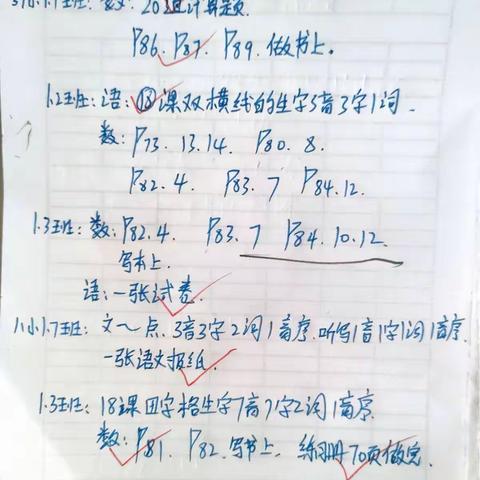 1.1班: 数: 20道计算题.
P86. P87. P89. 做书上.
1.2班: 语: ⑱课双横线的生字3音3字1词.
数: P73. 13.14. P80. 8.
P82. 4. P83. 7 P84. 12.
1.3班: 数: P82. 4. P83. 7 P84. 10. 12.
写本上.
语: 一张试卷.
八小1.7班: 文~点. 3音3字2词1音序. 听写1音1字1词1音序.
一张语文报纸.
1.3班: 18课田字格生字1音1字2词1音序.
数: P81. P82. 写书上. 练习册70页做完.